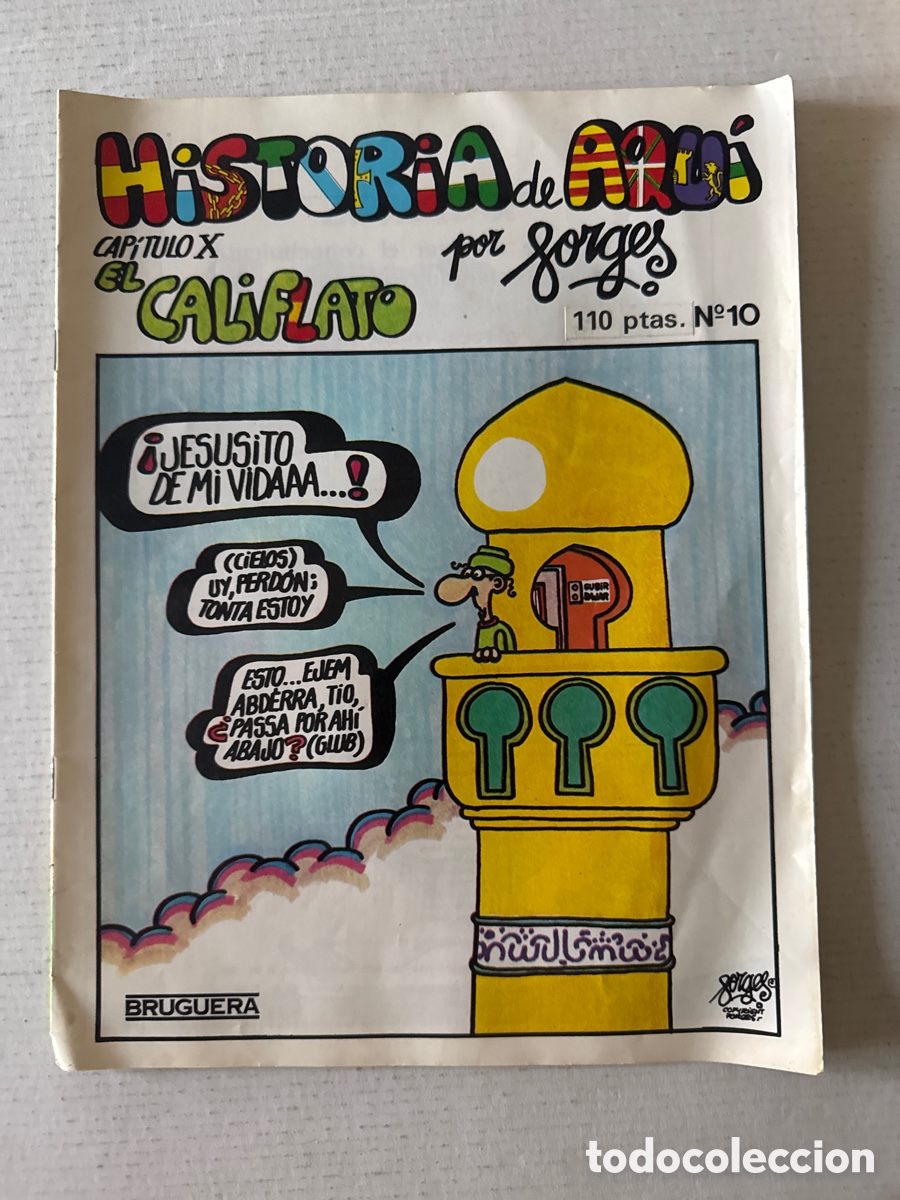 HiSTORiA de AQUÍ
CAPíTULO X
por Forges
EL
CALIFLATO
110 ptas. Nº10
¡JESUSiTO
DE Mi VIDAAA...!
(CiELOS)
UY, PERDÓN;
TONTA ESTOY
ESTO... EJEM
ABDERRA, TíO,
¿PASSA POR AHÍ
ABAJO? (GLUB)
SUBIR
BAJAR
BRUGUERA
Forges
COPYRIGHT
FORGES
todocoleccion